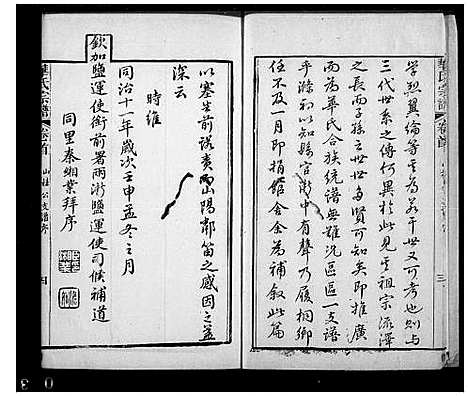 學熙翼綸等其為若干世又可考也則与
三代世系之傳何異於此見其祖宗流澤
之長而子孫立世世多賢可知矣即推廣
而為華氏合族統譜無難況區區一支譜
乎滌初以知縣官浙中有聲乃履桐鄉
任不及一月即捐館舍余為補叙此篇
以塞生前諾責山陽鄰笛之感因之益
深云
時維
同治十一年歲次壬申孟冬之月
欽加鹽運使銜前署兩浙鹽運使司候補道
同里秦緗業拜序
華氏宗譜
卷首
山桂公支譜序
華氏宗譜
卷首
三